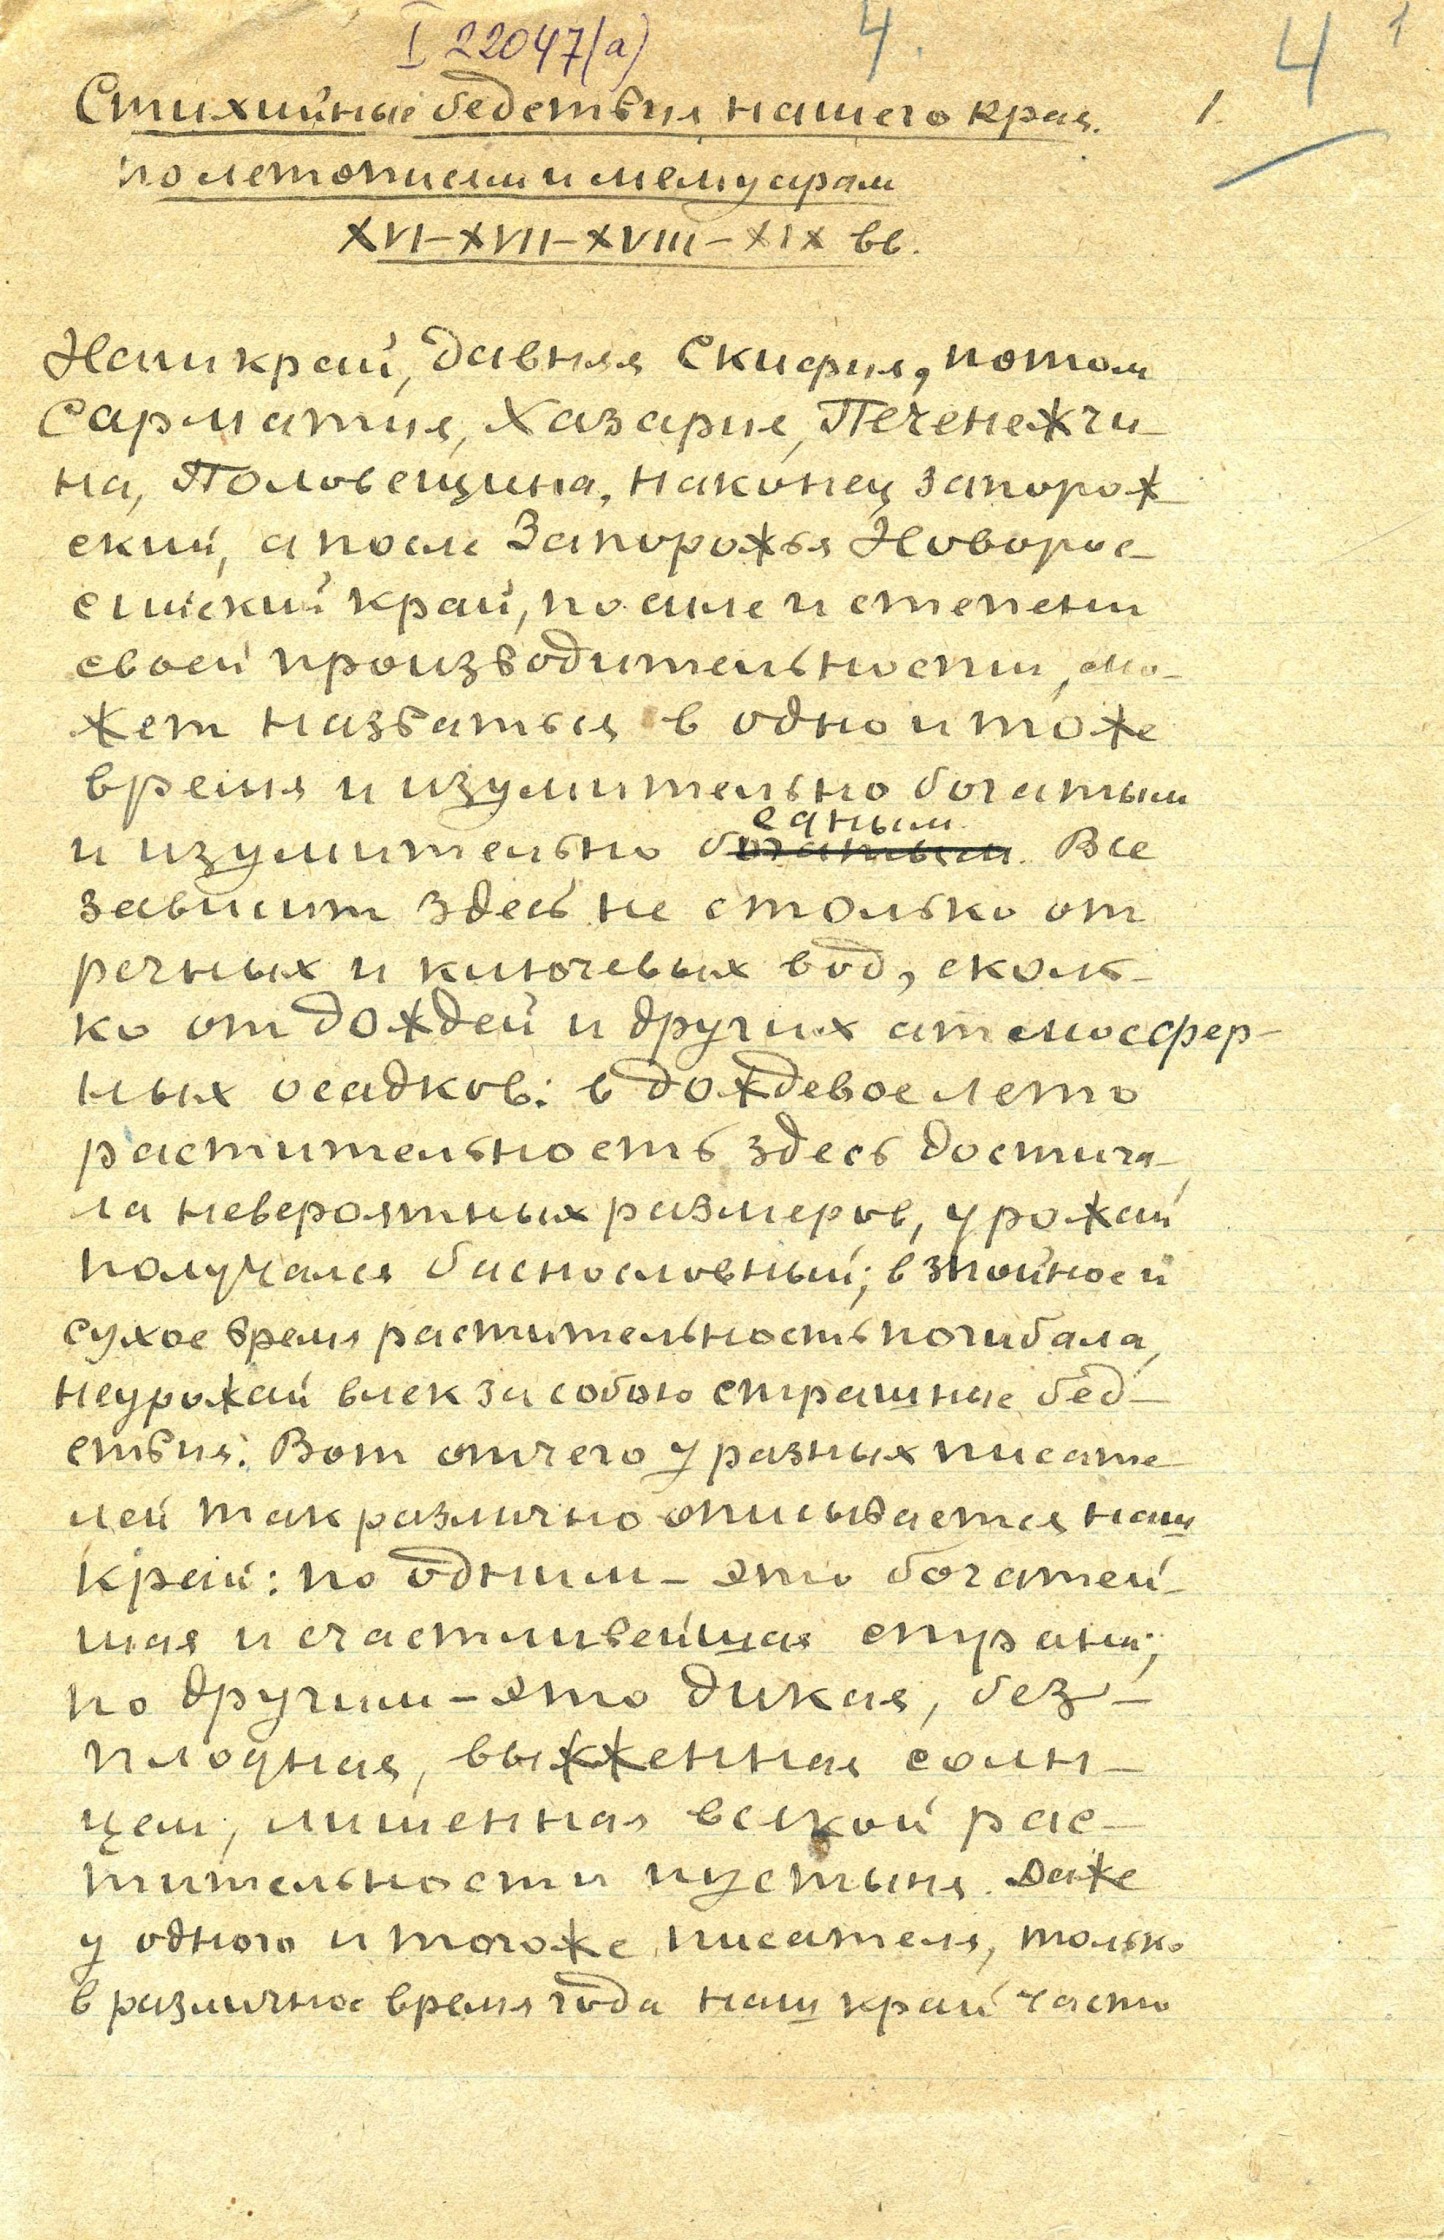 I 22047(а) 4. 4 1
Стихийные бедствия нашего края. 1.
по летописям и мемуарам
XVI–XVII–XVIII–XIX вв.
Наш край, давняя Скифия, потом
Сарматия, Хазария, Печенежчи-
на, Половещина, наконец запорож
ский, а после Запорожья Новорос-
сийский край, по силе и степени
своей производительности, мо-
жет назваться в одно и тоже
время и изумительно богатым
едным
и изумительно богатым. Все
зависит здесь не столько от
речных и ключевых вод, сколь-
ко от дождей и других атмоссфер-
ных осадков: в дождевое лето
растительность здесь достига-
ла невероятных размеров, урожай
получался баснословный; в знойное и
сухое время растительность погибала,
неурожай влек за собою страшные бед-
ствия. Вот отчего у разных писате-
лей так различно описывается наш
край: по одним – это богатей-
шая и счастливейшая страна;
по другим – это дикая, без-
плодная, выжженная солн-
цем, лишенная всякой рас-
тительности пустыня. Даже
у одного и тогоже писателя, только
в различное время года наш край часто